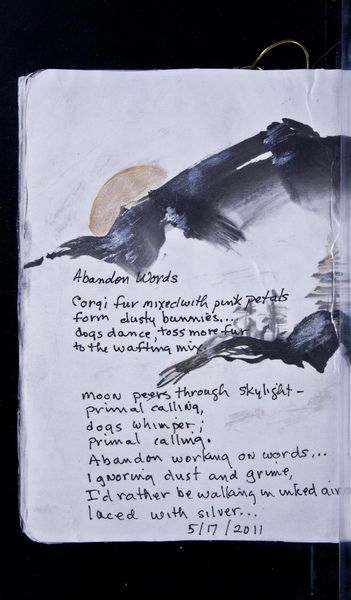 Abandon Words
Corgi fur mixed with pink petals
form dusty bunnies...
dogs dance, toss more fur
to the wafting mix.
moon peers through skylight -
primal calling,
dogs whimper;
primal calling.
Abandon working on words...
Ignoring dust and grime,
I'd rather be walking in inked air
laced with silver...
5/17/2011